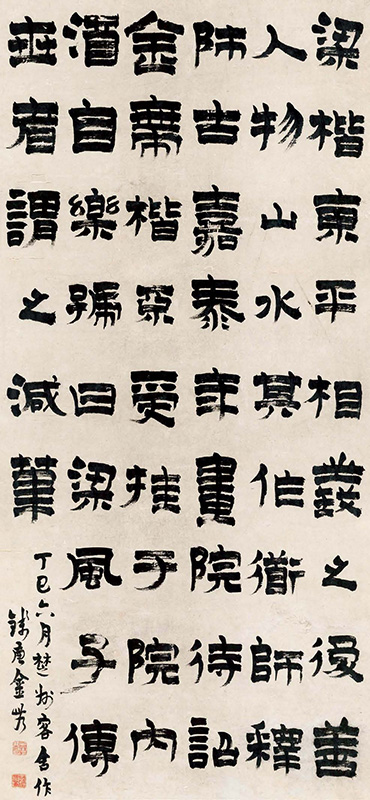 梁楷東平相義之後善
人物山水其作衜師釋
師古嘉泰年畫院待詔
金帶楷受挂于院內
酒自樂號曰梁風子傳
世者謂之減筆
丁巳六月楚州客舍作
錢唐金農